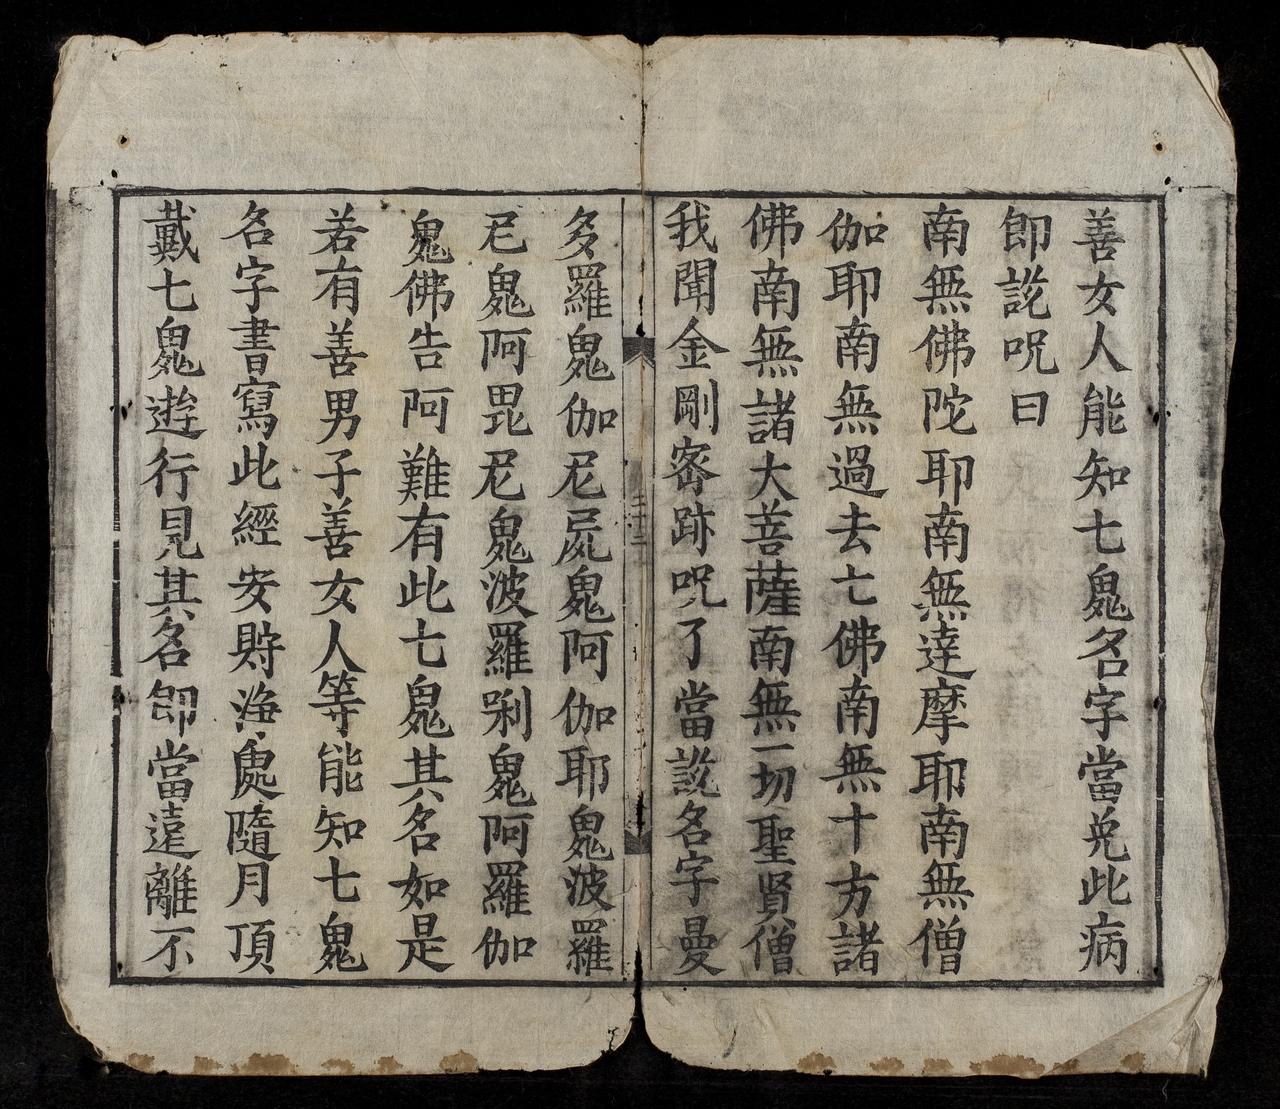 善女人能知七鬼名字當免此病
即說呪曰
南無佛陀耶南無達摩耶南無僧
伽耶南無過去七佛南無十方諸
佛南無諸大菩薩南無一切聖賢僧
我聞金剛密跡呪了當說名字曼
多羅鬼伽尼屍鬼阿伽耶鬼波羅
尼鬼阿毘尼鬼波羅剎鬼阿羅伽
鬼佛告阿難有此七鬼其名如是
若有善男子善女人等能知七鬼
名字書寫此經安貯淨處隨月頂
戴七鬼遊行見其名即當遠離不
二十二